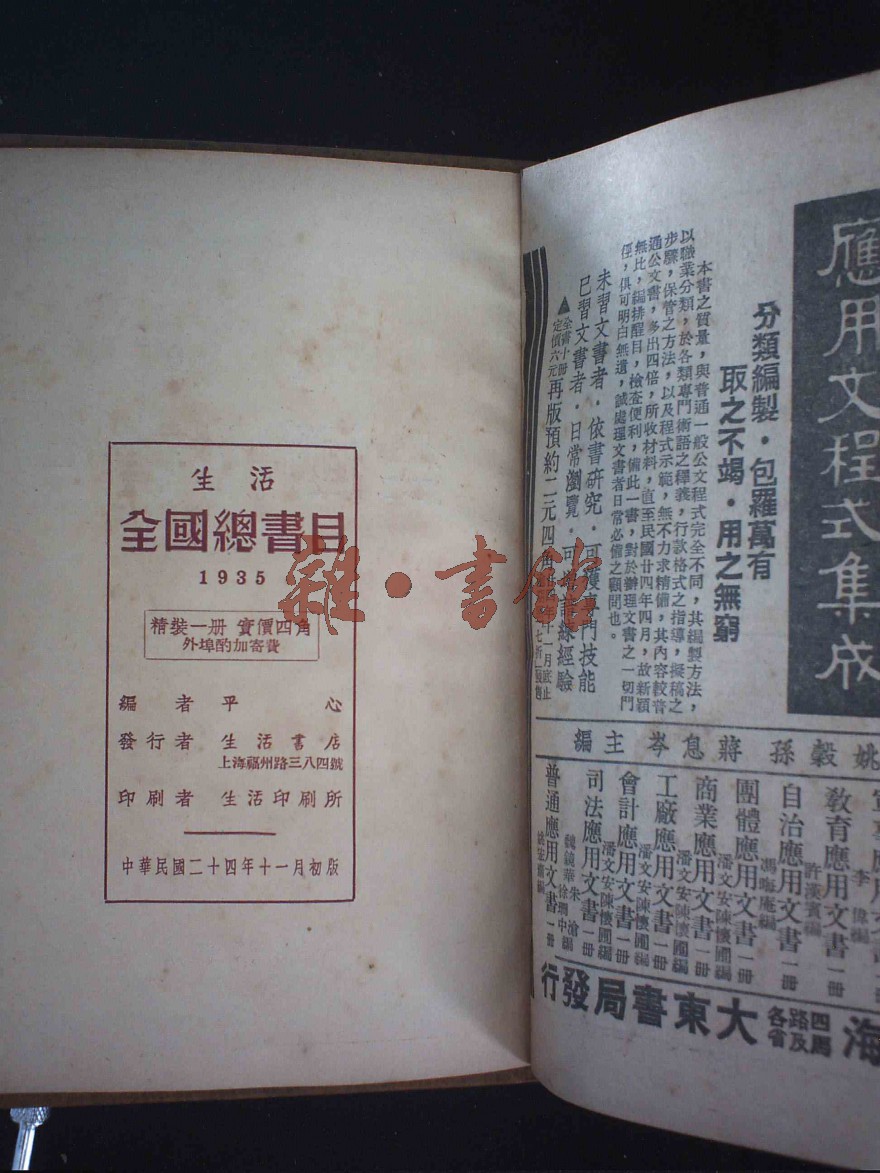 生活
全國總書目
1935
精裝一册 實價四角
外埠酌加寄費
編者 平心
發行者 生活書店
上海福州路三八四號
印刷者 生活印刷所
中華民國二十四年十一月初版
雜·書館
應用文程式集成
分類編製·包羅萬有
取之不竭·用之無窮
本書之質量，與普通一般公文程式完全不同，其編製方法，
以職業分類，於各類專門術語之釋義，行款格式之指導，擬稿之
步驟，保管之方法，以及程式示範，無不力求精備，其內容較普
通公文書，多出四倍，所收材料，直至民國廿四年四月，故新穎
無比，編排醒目，檢查便利，備此一書，對於辦理文書之一切門
徑，俱可明白無遺，誠處理文書者日常必備之顧問也。
未習文書者·依書研究·可獲專門技能
已習文書者·日常瀏覽·可增訓練經驗
▲全書十册
定價六元
再版預約二元四角
姚穀孫 蔣息岑 主編
李偉編
教育應用文書一册
許漢賓編
自治應用文書一册
馮晦庵編
團體應用文書一册
潘文安陳懷圃編
商業應用文書一册
潘文安陳懷圃編
工廠應用文書一册
潘文安陳懷圃編
會計應用文書一册
潘文安陳懷圃編
司法應用文書一册
魏鏡華朱滄徐珊中編
普通應用文書一册
海
四馬路及各省
大東書局發行